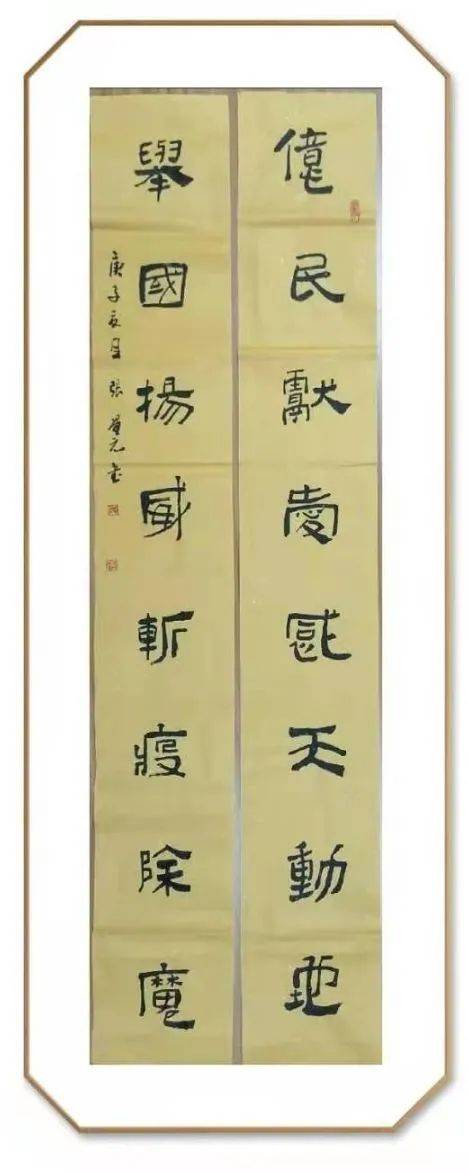 億民獻愛感天動地
舉國揚威斬疫除魔
庚子夏月 張 元書